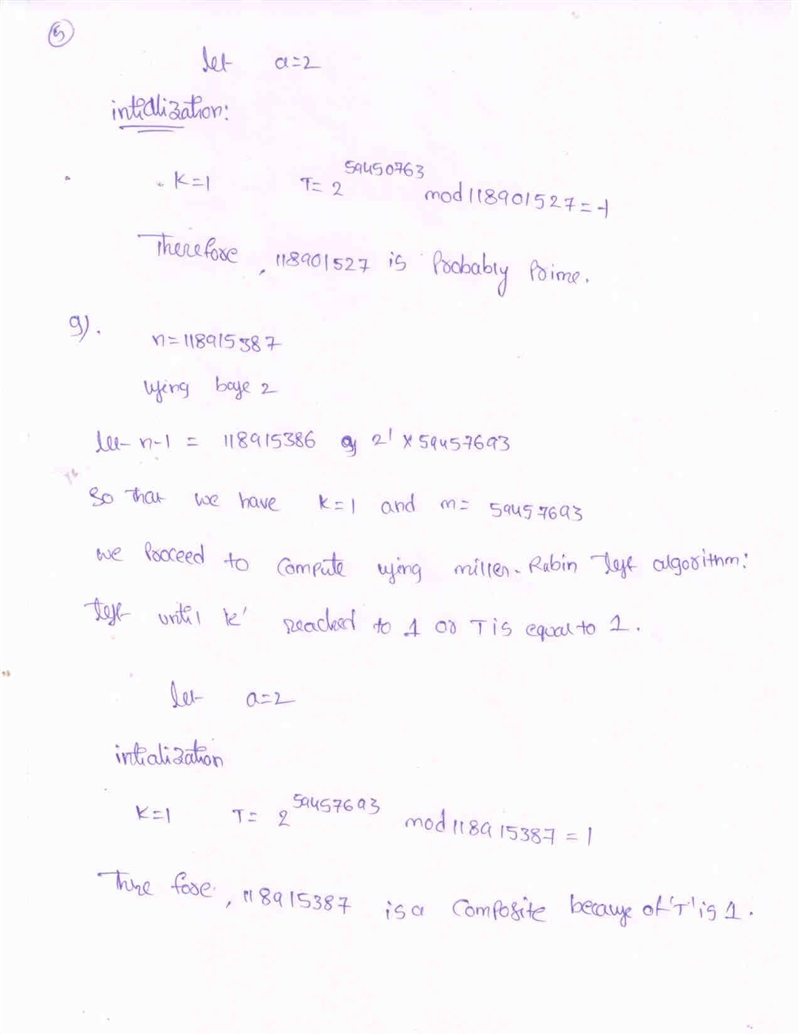 5
let a=2
intialization:
K=1 T= 2^59450763 mod 118901527 = -1
Therefore, 118901527 is Probably Prime.
9).
n=118915387
using base 2
let n-1 = 118915386 as 2^1 × 59457693
So that we have K=1 and m= 59457693
we Proceed to compute using miller-Rabin Test algorithm:
Test until 'k' reached to 1 or T is equal to 1.
let a=2
intialization
K=1 T= 2^59457693 mod 118915387 = 1
There fore, 118915387 is a Composite because of 'T' is 1.